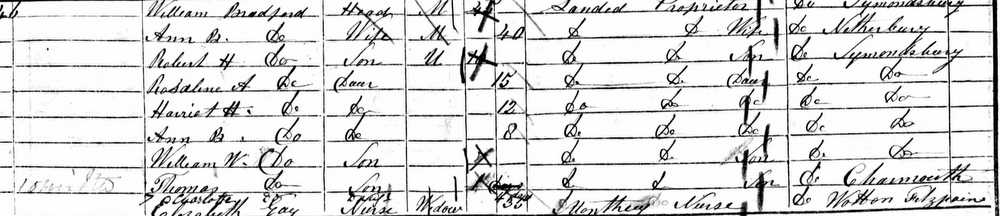 46 William Bradford Head M Landed Proprietor Do Symondsbury
Ann B. Do Wife M 40 Do Do Wife Do Netherbury
Robert H Do Son U Do Do Son Do Symondsbury
Rosaline A Do Daur 15 Do Do Daur Do Do
Harriet H. Do Do 12 Do Do Do Do Do
Ann B. Do Do 8 Do Do Do Do Do
William W. Do Son Do Do Son Do Do
Thomas Do Son Do Do Son Do Charmouth
Gay Nurse Widow 55 Monthly Nurse Do Wotton Fitzpain